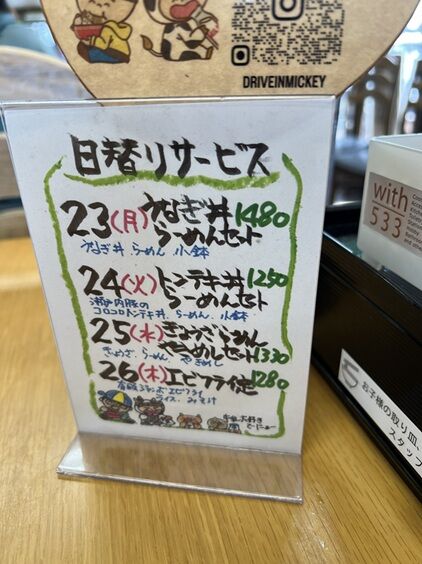 DRIVEINMICKEY
日替りサービス
23(月)うなぎ丼 1480
らーめんセット
うなぎ丼 らーめん 小鉢
24(火)トンテキ丼 1250
らーめんセット
瀬戸内豚の
コロコロトンテキ丼、らーめん、小鉢
25(水)ぎょうざらーめん
やきめしセット1330
ぎょうざ、らーめん やきめし
26(木)エビフライ定 1280
エビフライ
ライス、みそ汁
with
533
お子様の取り皿、
スタッフ